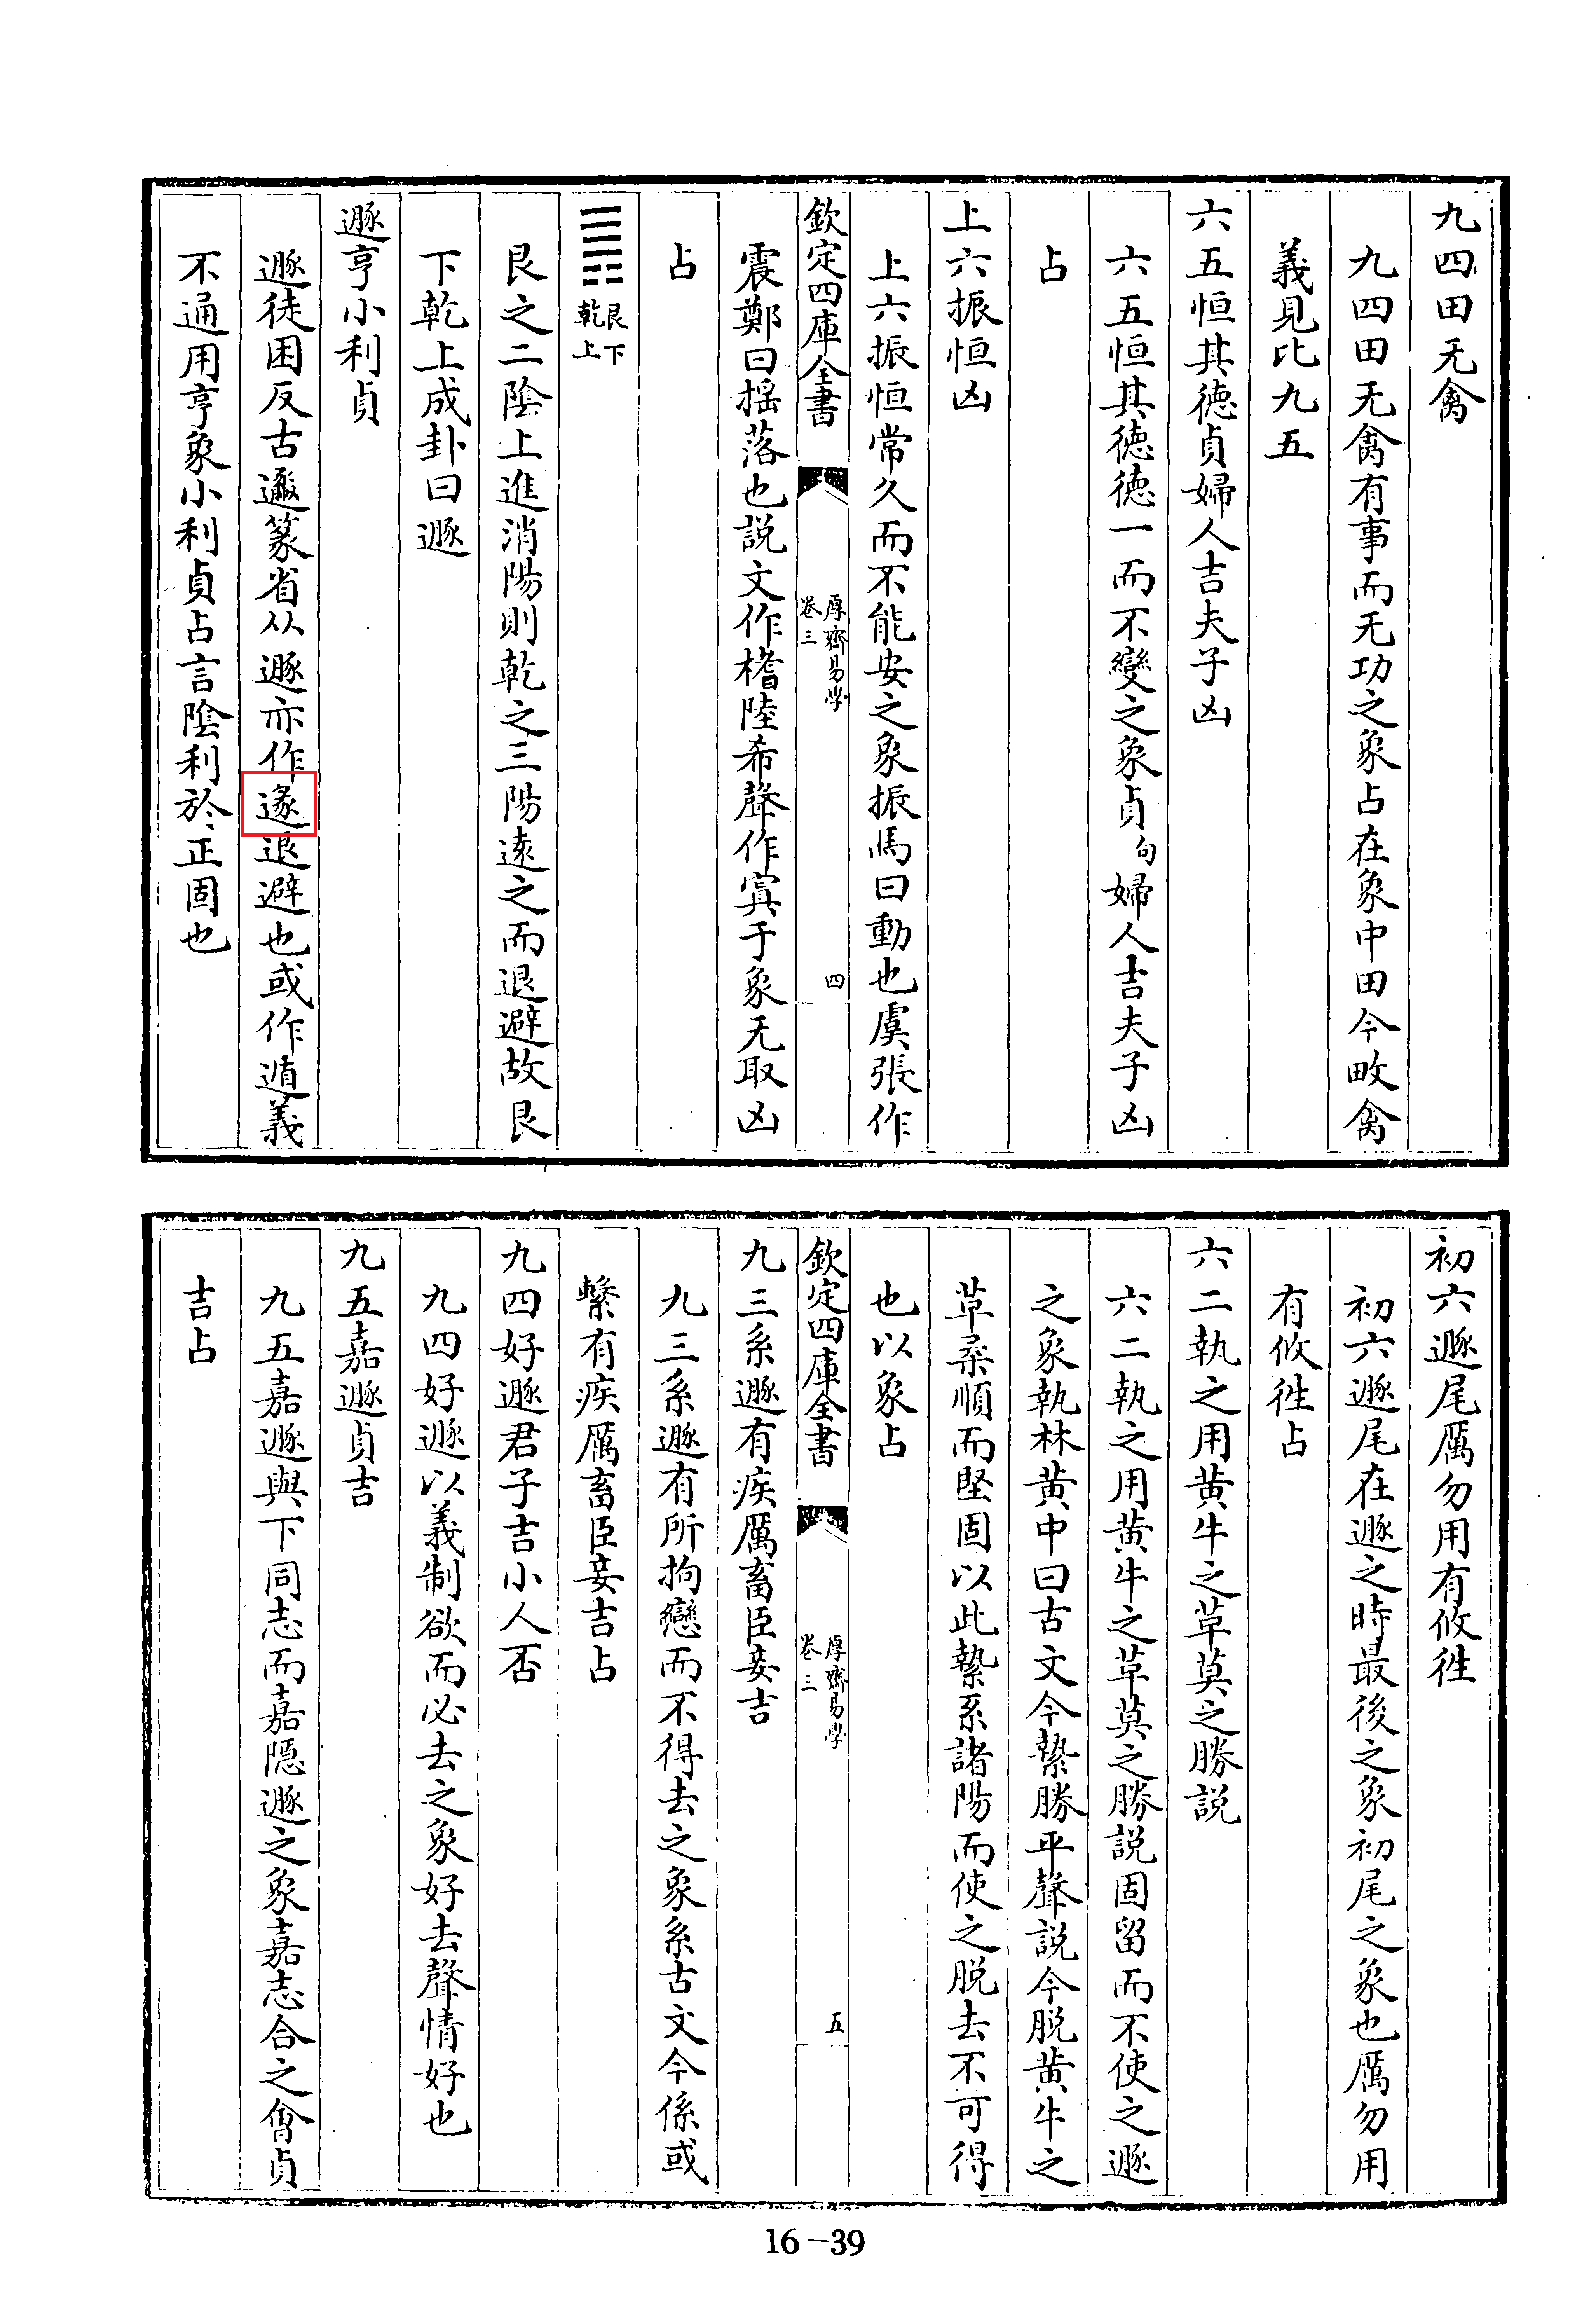 九四田无禽
九四田无禽有事而无功之象占在象中田今畋禽
義見比九五
六五恒其徳貞婦人吉夫子凶
六五恒其徳徳一而不變之象貞句婦人吉夫子凶
占
上六振恒凶
上六振恒常久而不能安之象振馬曰動也虞張作
欽定四庫全書
厚齋易學
卷三
四
震鄭曰揺落也説文作榰陸希聲作寘于象无取凶
占
䷠艮下
乾上
艮之二陰上進消陽則乾之三陽遠之而退避故艮
下乾上成卦曰遯
遯亨小利貞
遯徒困反古篆省从遯亦作𨔵退避也或作遁義
不通用亨象小利貞占言陰利於正固也
初六遯尾厲勿用有攸往
初六遯尾在遯之時最後之象初尾之象也厲勿用
有攸徃占
六二執之用黄牛之革莫之勝説
六二執之用黄牛之革莫之勝説固留而不使之遯
之象執林黄中曰古文今縶勝平聲説今脱黄牛之
革柔順而堅固以此縶系諸陽而使之脱去不可得
也以象占
欽定四庫全書
厚齋易學
卷三
五
九三系遯有疾厲畜臣妾吉
九三系遯有所拘戀而不得去之象系古文今係或
繫有疾厲畜臣妾吉占
九四好遯君子吉小人否
九四好遯以義制欲而必去之象好去聲情好也
九五嘉遯貞吉
九五嘉遯與下同志而嘉隱遯之象嘉志合之會貞
吉占
16-39